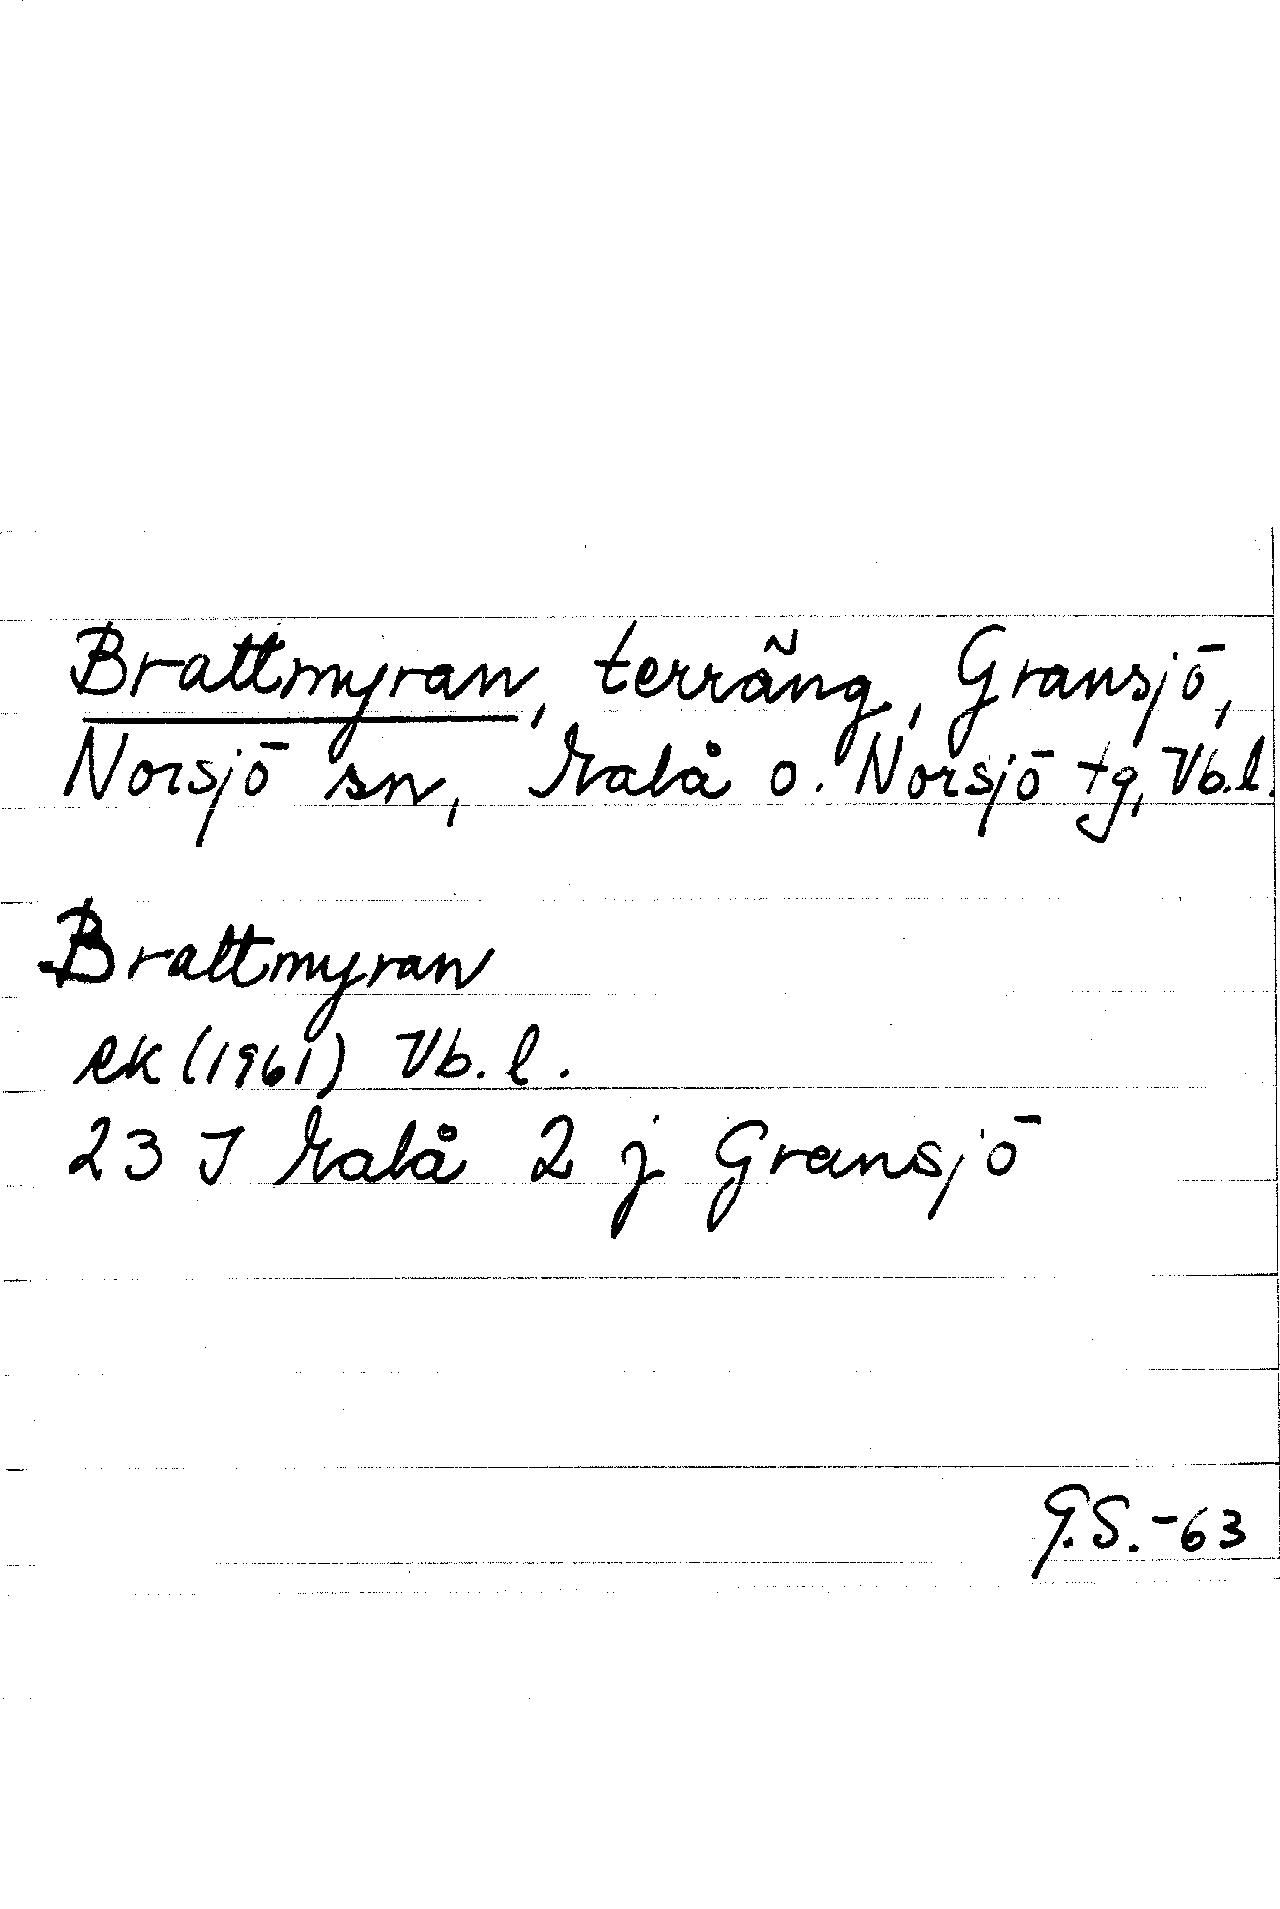 Brattmyran, terräng, Gransjö,
Norsjö sn, Malå o. Norsjö tg, Vb.l.
Brattmyran
RK (1961) Vb. l.
23 J Malå 2 j Gransjö
G.S.-63